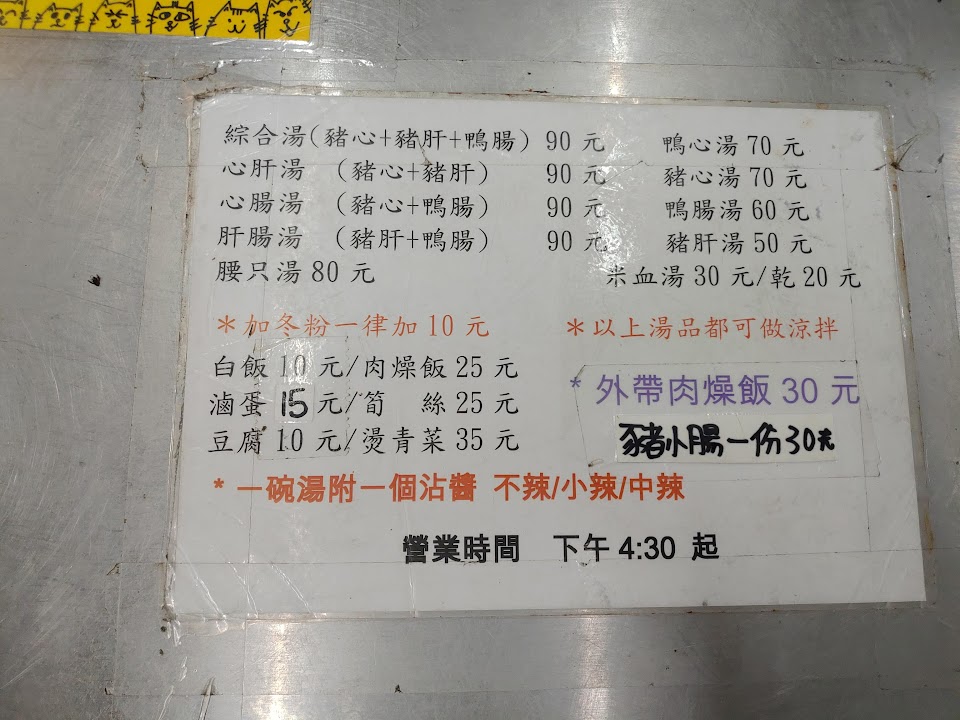 綜合湯(豬心+豬肝+鴨腸) 90 元 鴨心湯 70 元
心肝湯 (豬心+豬肝) 90 元 豬心湯 70 元
心腸湯 (豬心+鴨腸) 90 元 鴨腸湯 60 元
肝腸湯 (豬肝+鴨腸) 90 元 豬肝湯 50 元
腰只湯 80 元 米血湯 30 元/乾 20 元
*加冬粉一律加 10 元 *以上湯品都可做涼拌
白飯 10 元/肉燥飯 25 元
滷蛋 15 元/筍 絲 25 元
豆腐 10 元/燙青菜 35 元
* 外帶肉燥飯 30 元
豬小腸一份30元
* 一碗湯附一個沾醬 不辣/小辣/中辣
營業時間 下午 4:30 起